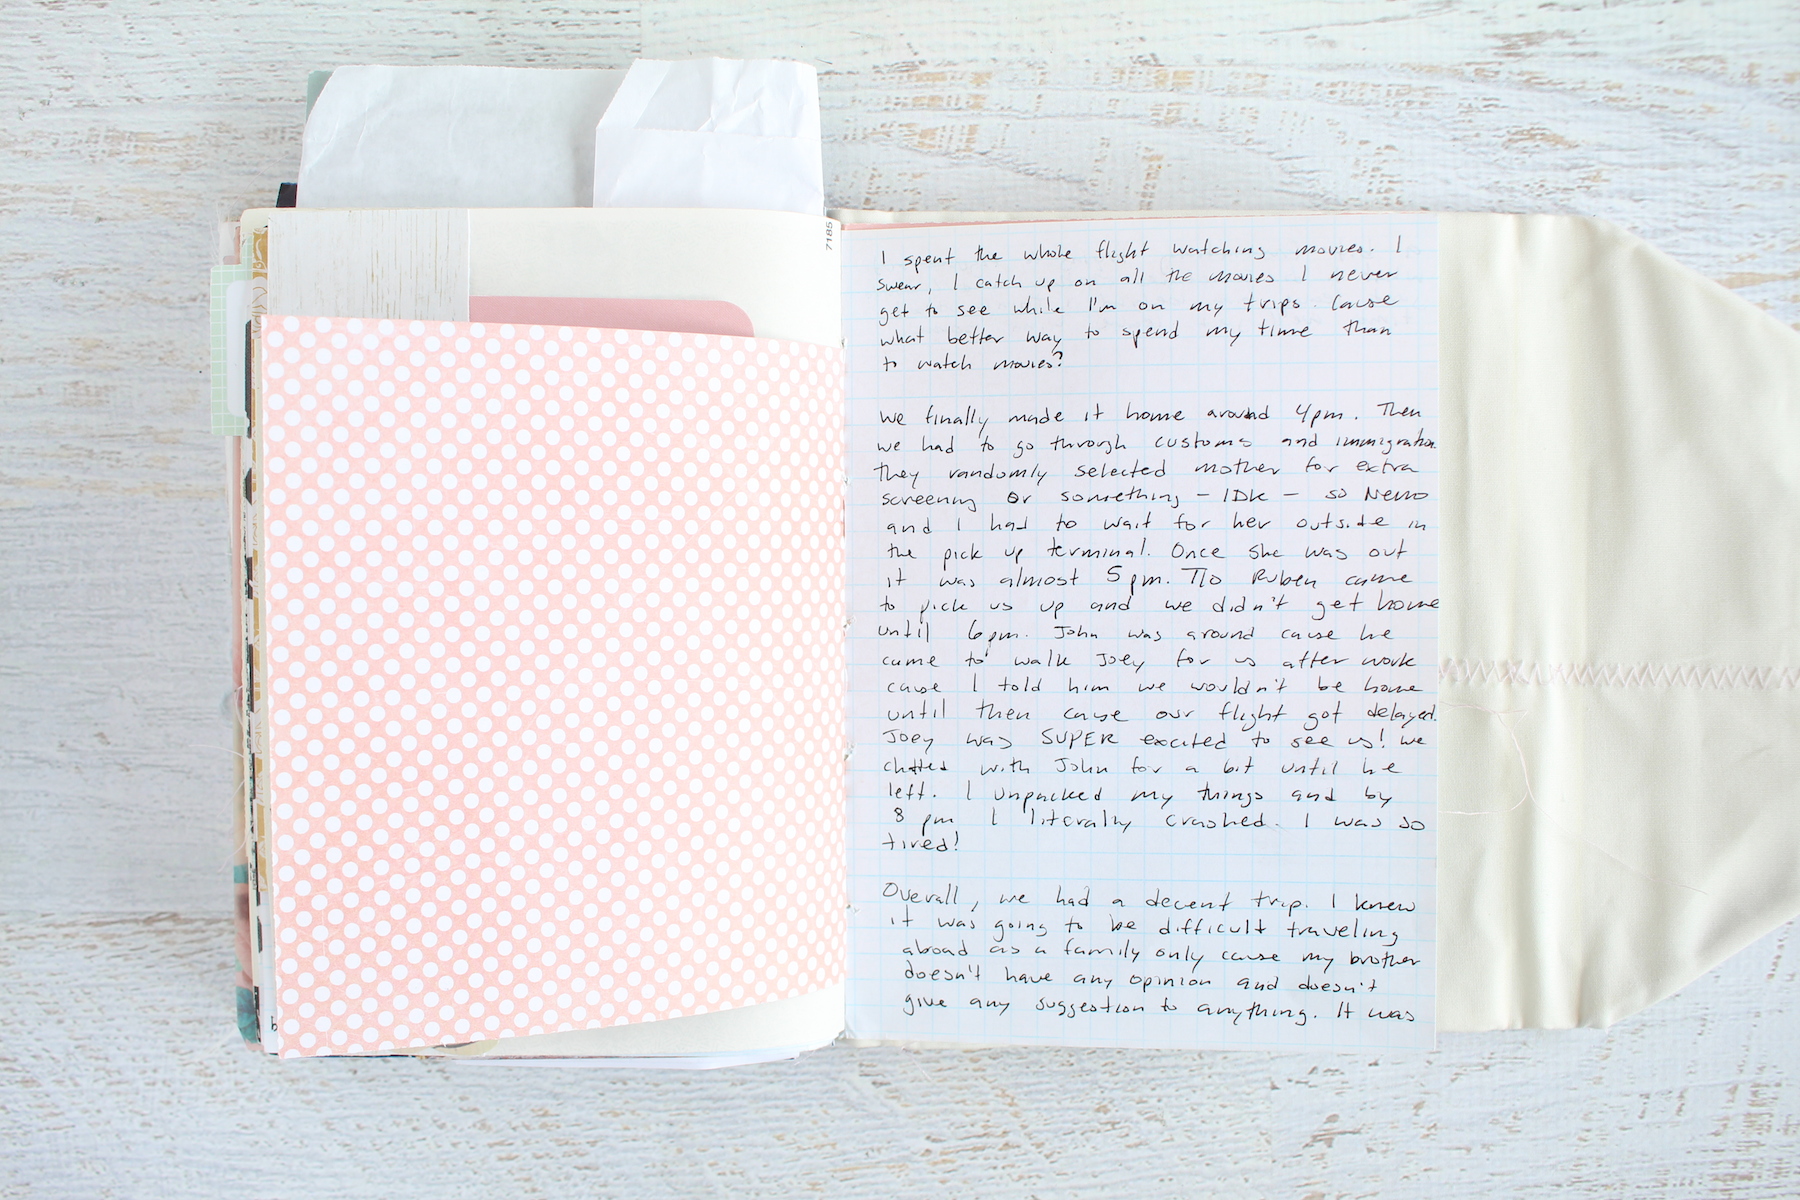 7185
I spent the whole flight watching movies. I
swear, I catch up on all the movies I never
get to see while I'm on my trips. Cause
what better way to spend my time than
to watch movies?
We finally made it home around 4pm. Then
we had to go through customs and immigration.
they randomly selected mother for extra
screening or something - IDK - so Nemo
and I had to wait for her outside in
the pick up terminal. Once she was out
it was almost 5pm. Tio Ruben came
to pick us up and we didn't get home
until 6pm. John was around cause he
came to walk Joey for us after work
cause I told him we wouldn't be home
until then cause our flight got delayed.
Joey was SUPER excited to see us! We
chatted with John for a bit until he
left. I unpacked my things and by
8 pm I literally crashed. I was so
tired!
Overall, we had a decent trip. I knew
it was going to be difficult traveling
aboad as a family only cause my brother
doesn't have any opinion and doesn't
give any suggestion to anything. It was
b